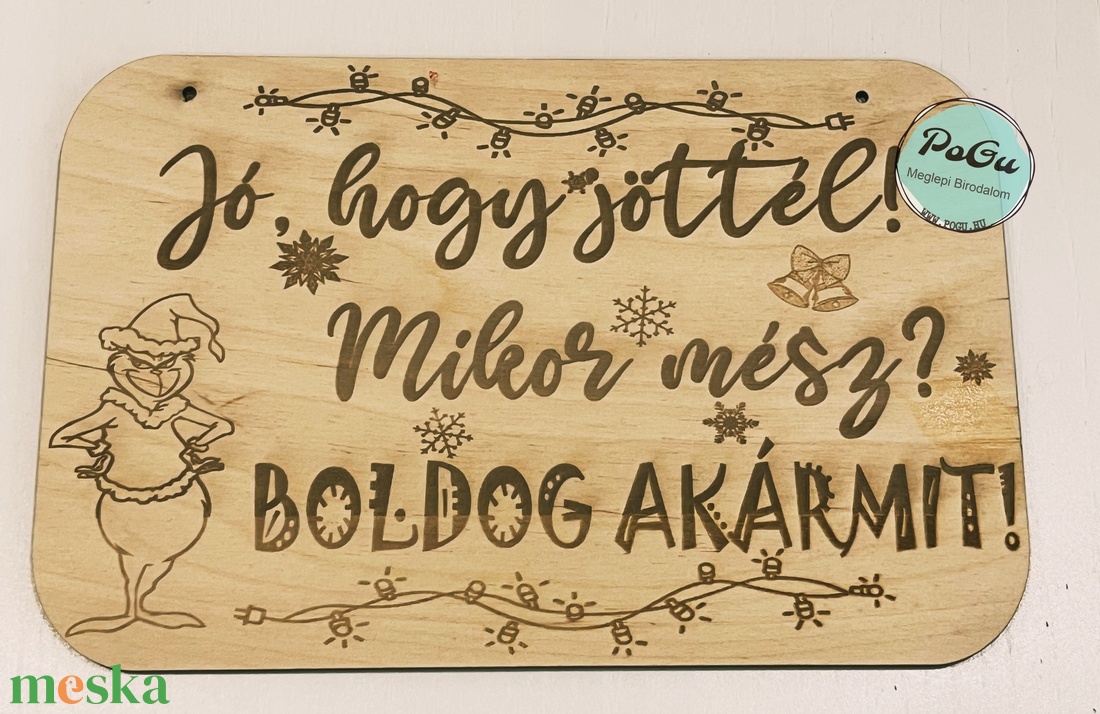 Jó, hogy jöttél!
PoGu
Meglepi Birodalom
WWW.POGU.HU
Mikor mész?
BOLDOG AKÁRMIT!
meska